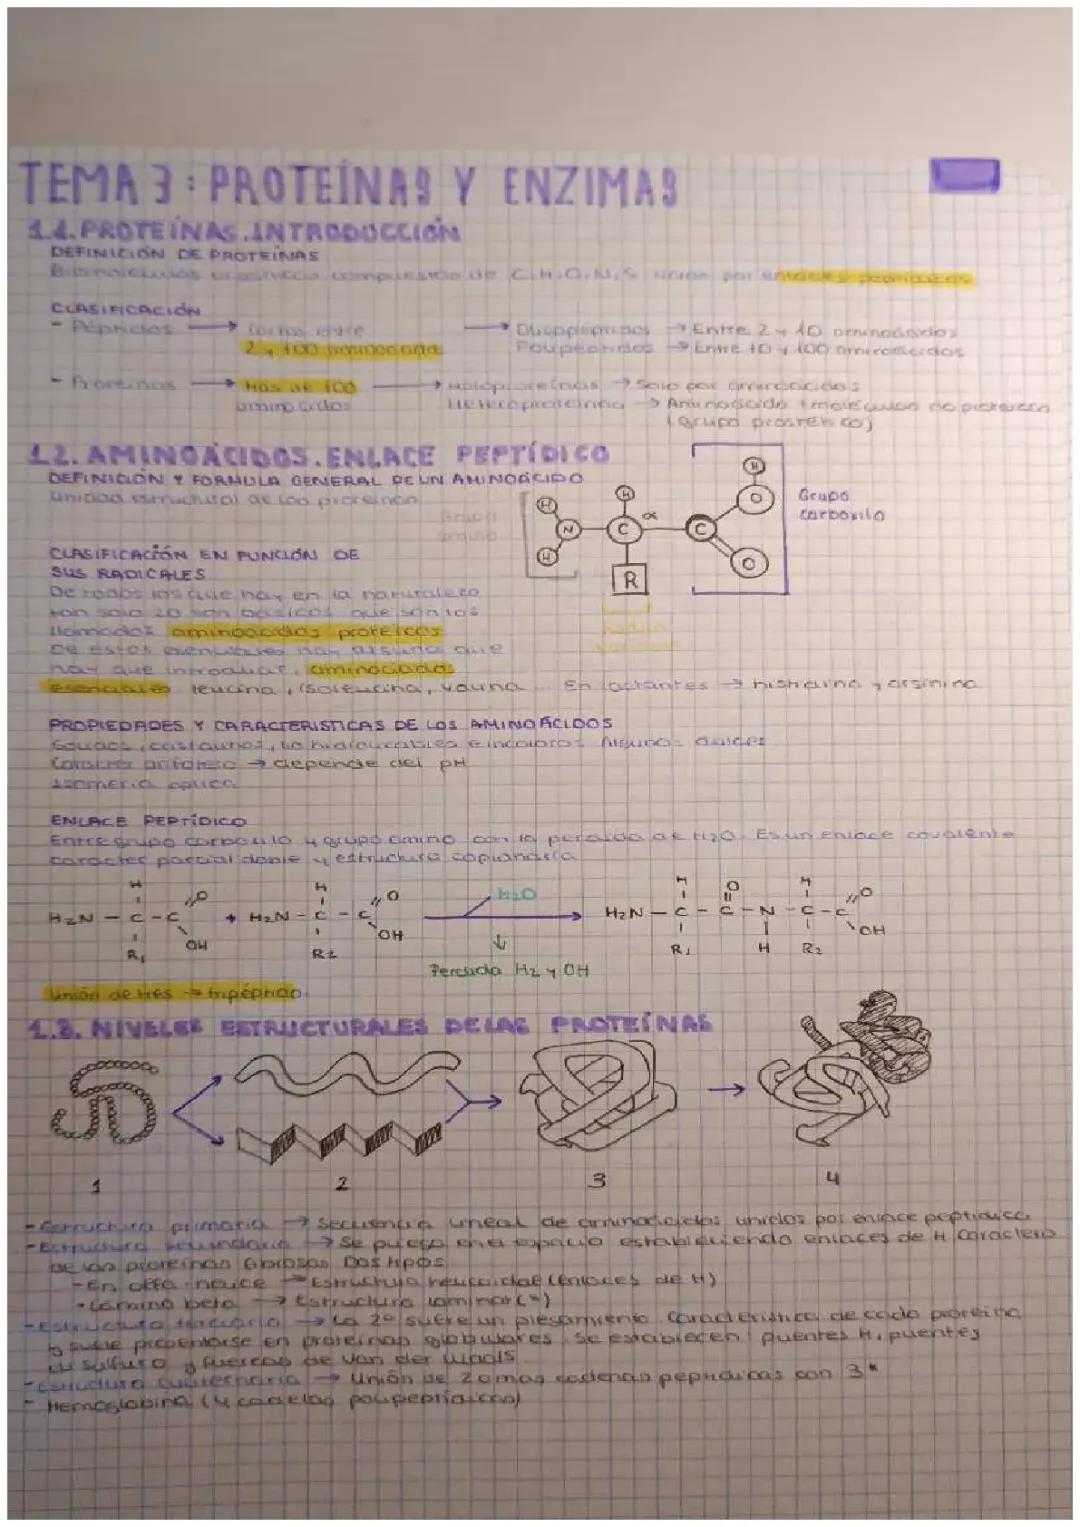 TEMA 3: PROTEÍNAS Y ENZIMAS
1.1. PROTEÍNAS. INTRODUCCIÓN
DEFINICIÓN DE PROTEÍNAS
Biomoléculas compuesta de C, H, O, N, S unión por enlaces peptídicos
CLASIFICACIÓN
- Péptidos → Cortos entre 2 y 100 aminoácido
Oligopéptidos → Entre 2 y 10 aminoácidos
Polipéptidos → Entre 10 y 100 aminoácidos
- Proteínas → Más de 100 aminoácidos
Holoproteínas → Solo por aminoácidos
Heteroproteína → Aminoácido + moléculas no proteica
(grupo prostético)
1.2. AMINOÁCIDOS. ENLACE PEPTÍDICO
DEFINICIÓN Y FORMULA GENERAL DE UN AMINOÁCIDO
Unidad estructural de las proteínas
Grupo amino
H
H
N
H
C
α
R
C
H
O
O
Grupo carboxilo
CLASIFICACIÓN EN FUNCIÓN DE
SUS RADICALES
De todos los que hay en la naturaleza
tan solo 20 son básicos que son los
llamados aminoácidos proteicos
De estos hay algunos que
hay que introducir, aminoácidos
esenciales leucina, isoleucina, valina... En lactantes → histidina y arginina
PROPIEDADES Y CARACTERISTICAS DE LOS AMINOÁCIDOS
Sólidos, cristalinos, no hidrolizables e incoloros Algunos dulces
Carácter anfótero → depende del pH
Isomería óptica
ENLACE PEPTÍDICO
Entre grupo carboxilo y grupo amino con la perdida de H2O. Es un enlace covalente
caracter parcial doble y estructura coplanaria
H2N - C - C O OH + H2N - C - C O OH H2O → H2N - C - C - N - C - C O OH
H R1 H R2 H R1 O H H R2
Perdida H2 y OH
Unión de tres → tripéptido.
1.3. NIVELES ESTRUCTURALES DE LAS PROTEÍNAS
1 2 3 4
- Estructura primaria → Secuencia lineal de aminoácidos unidos por enlace peptídico
- Estructura secundaria → Se pliega en el espacio estableciendo enlaces de H
de las proteínas fibrosas Dos tipos
- En alfa-hélice → Estructura helicoidal (enlaces de H)
- Lámina beta → Estructura laminar (")
- Estructura terciaria → La 2º sufre un plegamiento. Característica de cada proteína
y suele presentarse en proteínas globulares. Se establecen: puentes H, puentes
disulfuro y fuerzas de Van der Waals
- Estructura cuaternaria → Unión de 2 o mas cadenas peptídicas con 3ª
- Hemoglobina (4 cadenas polipeptídicas)